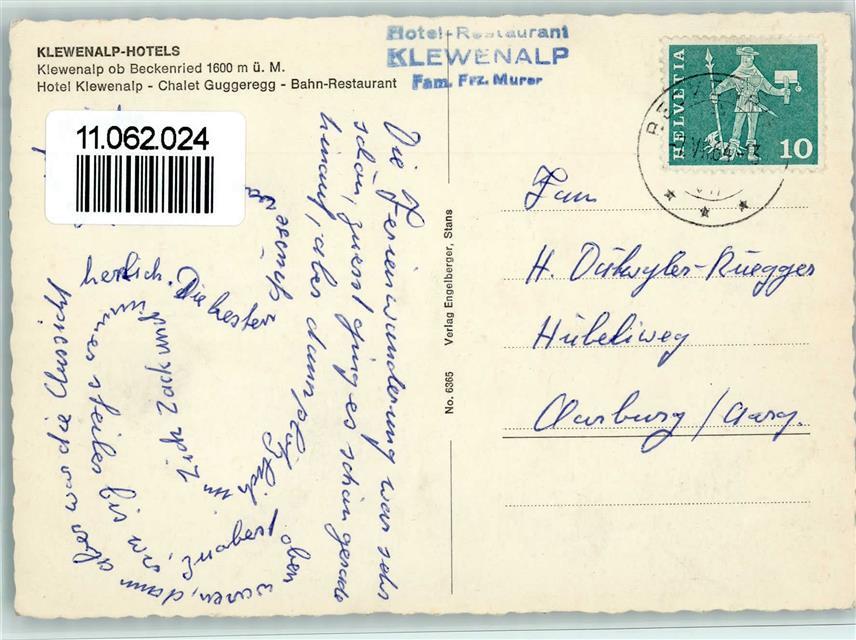 KLEWENALP-HOTELS
Klewenalp ob Beckenried 1600 m ü. M.
Hotel Klewenalp - Chalet Guggeregg - Bahn-Restaurant
Hotel-Restaurant
KLEWENALP
Fam. Frz. Murer
HELVETIA
10
11.062.024
Die Ferienwanderung war sehr
schön, zuerst ging es schön gerade
hinauf, aber dann
im Zick Zack und
immer steiler bis wir
oben waren, dann aber war die Aussicht
herrlich. Die besten
Grüsse
No. 6365 Verlag Engelberger, Stans
Frau
H. Dutwyler-Rüegger
Hübeliweg
Aarburg / Aarg.